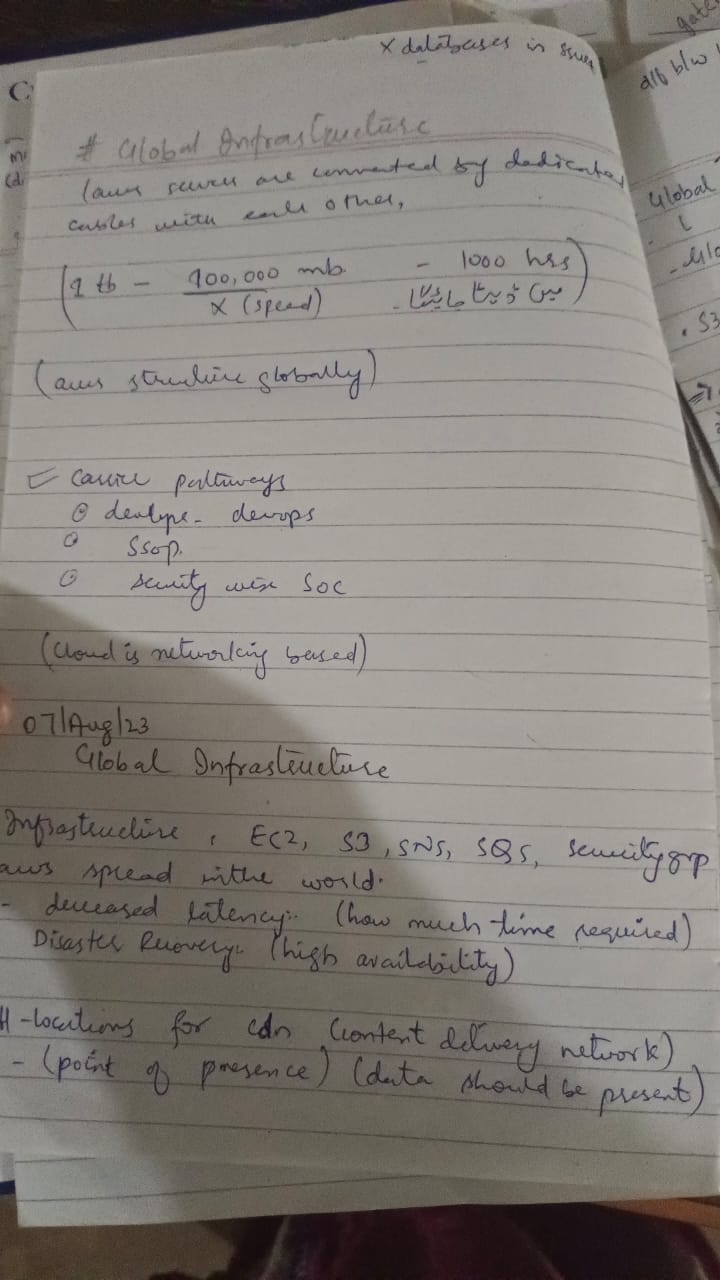 x databases in
# Global Infrastructure
(aws servers are connected by dedicated
cables with each other,
(1 tb - 100,000 mb - 1000 hrs)
x (speed) میں ڈیٹا جائیگا۔
(aws structure globally)
pathways
devops
SSOP.
security wise SOC
(Cloud is networking based)
07/Aug/23
Global Infrastructure
Infrastructure, EC2, S3, SNS, SQS, security grp
aws spread in the world.
- decreased latency:- (how much time required)
Disaster Recovery:- (high availability)
-locations for cdn (content delivery network)
- (point of presence) (data should be present)
diff b/w
Global
. S3